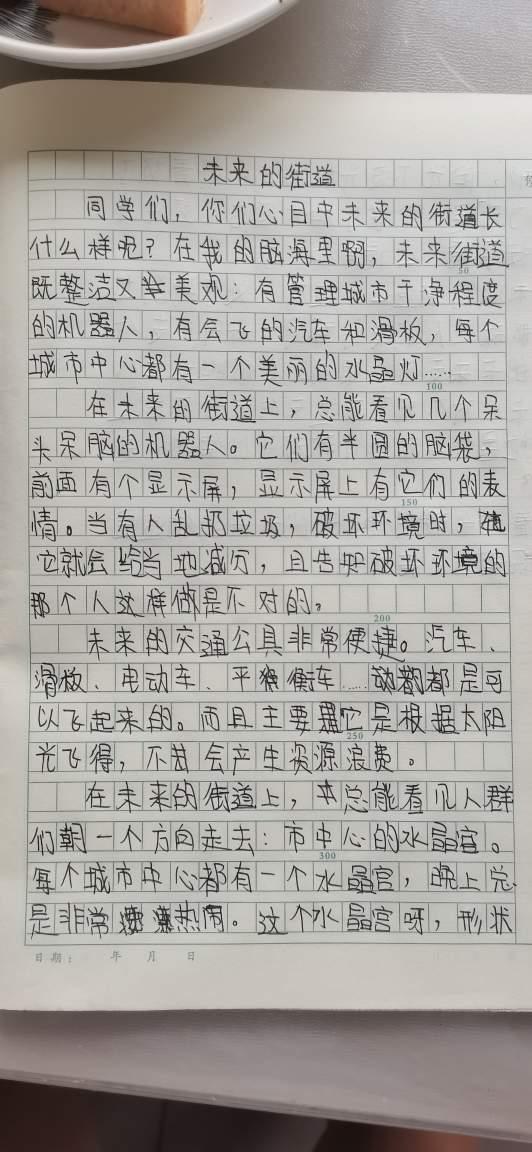 未来的街道
同学们，你们心目中未来的街道长
什么样呢？在我的脑海里啊，未来街道
50
既整洁又美观：有管理城市干净程度
的机器人，有会飞的汽车和滑板，每个
城市中心都有一个美丽的水晶灯……
100
在未来的街道上，总能看见几个呆
头呆脑的机器人。它们有半圆的脑袋，
前面有个显示屏，显示屏上有它们的表
150
情。当有人乱扔垃圾，破坏环境时，
它就会给当地减分，且告知破坏环境的
那个人这样做是不对的。
200
未来的交通公具非常便捷。汽车、
滑板、电动车、平衡车……都是可
以飞起来的。而且主要它是根据太阳
250
光飞得，不会产生资源浪费。
在未来的街道上，总能看见人群
们朝一个方向走去：市中心的水晶宫。
300
每个城市中心都有一个水晶宫，晚上
是非常热闹。这个水晶宫呀，形状
日期： 年 月 日